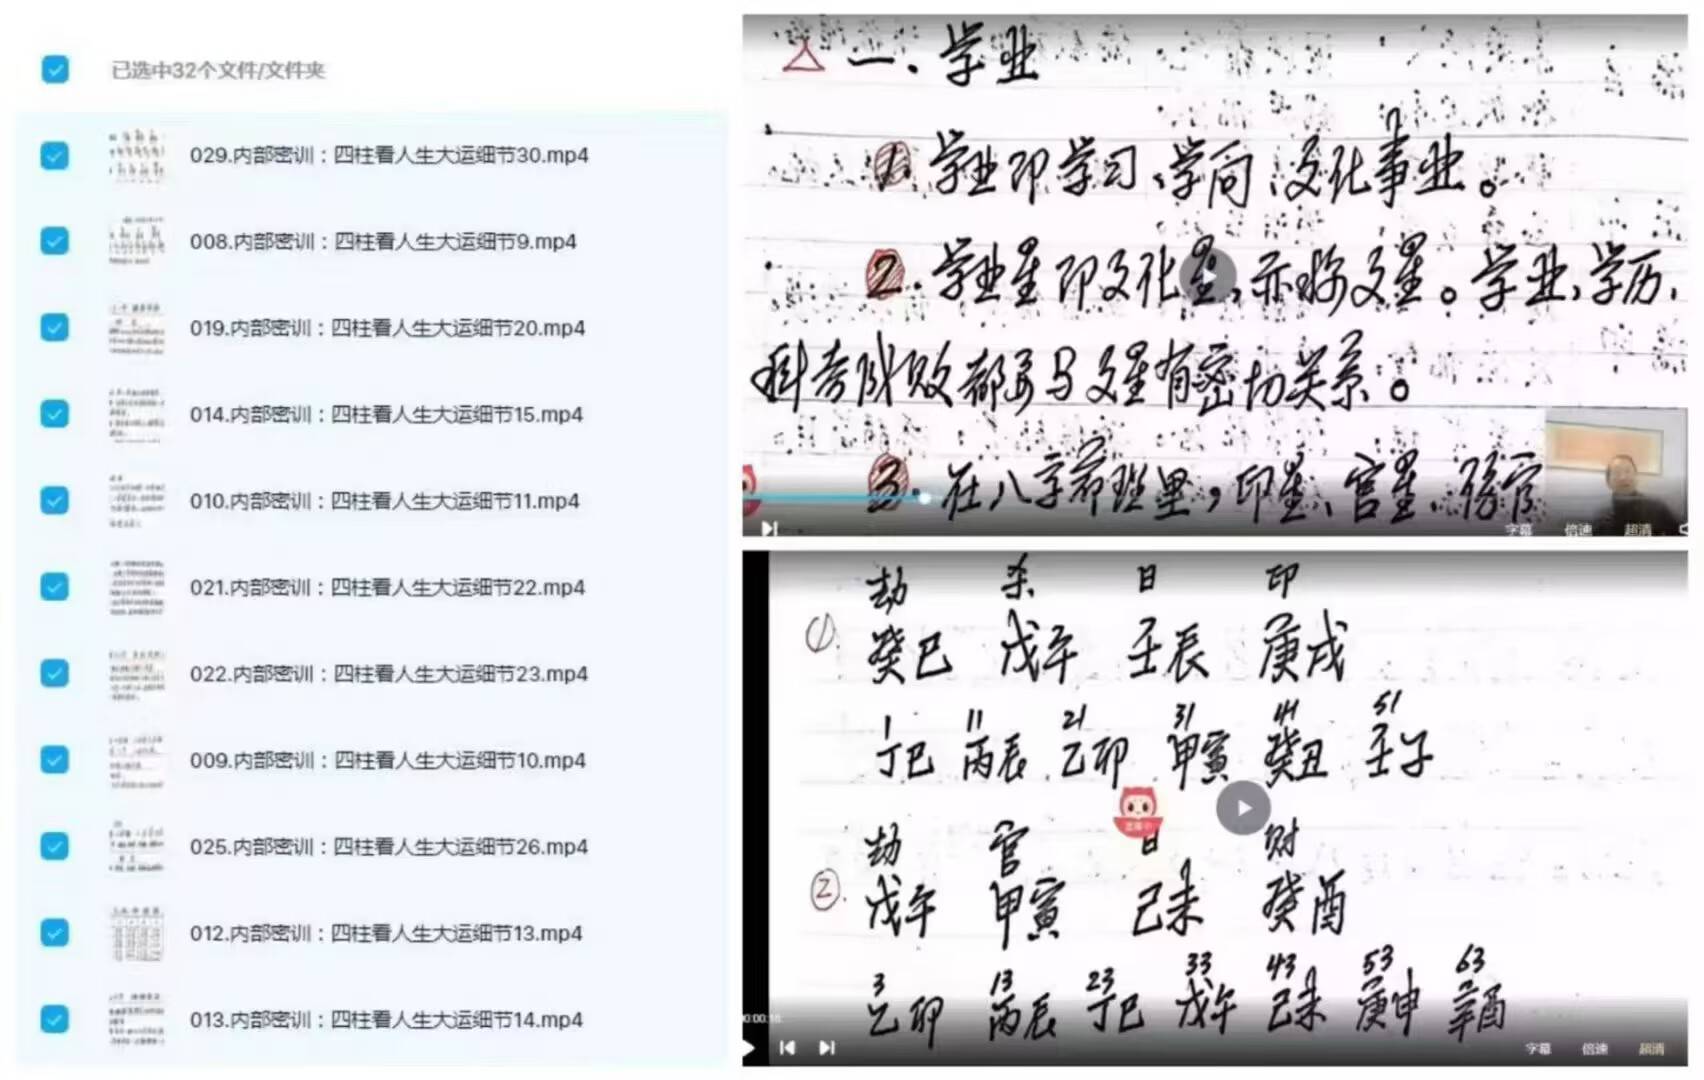 已选中32个文件/文件夹
029.内部密训：四柱看人生大运细节30.mp4
008.内部密训：四柱看人生大运细节9.mp4
019.内部密训：四柱看人生大运细节20.mp4
014.内部密训：四柱看人生大运细节15.mp4
010.内部密训：四柱看人生大运细节11.mp4
021.内部密训：四柱看人生大运细节22.mp4
022.内部密训：四柱看人生大运细节23.mp4
009.内部密训：四柱看人生大运细节10.mp4
025.内部密训：四柱看人生大运细节26.mp4
012.内部密训：四柱看人生大运细节13.mp4
013.内部密训：四柱看人生大运细节14.mp4
一.学业
1.学业即学习、学问、文化事业。
2.学业星即文化星,亦称文星。学业,学历,
科考成败都要与文星有密切关系。
3.在八字命理里,印星、官星、伤官
字幕 倍速 超清
劫 杀 日 印
①.癸巳 戊午 壬辰 庚戌
1 11 21 31 41 51
丁巳 丙辰 乙卯 甲寅 癸丑 壬子
劫 官 日 财
②.戊午 甲寅 己未 癸酉
3 13 23 33 43 53 63
乙卯 丙辰 丁巳 戊午 己未 庚申 辛酉
字幕 倍速 超清